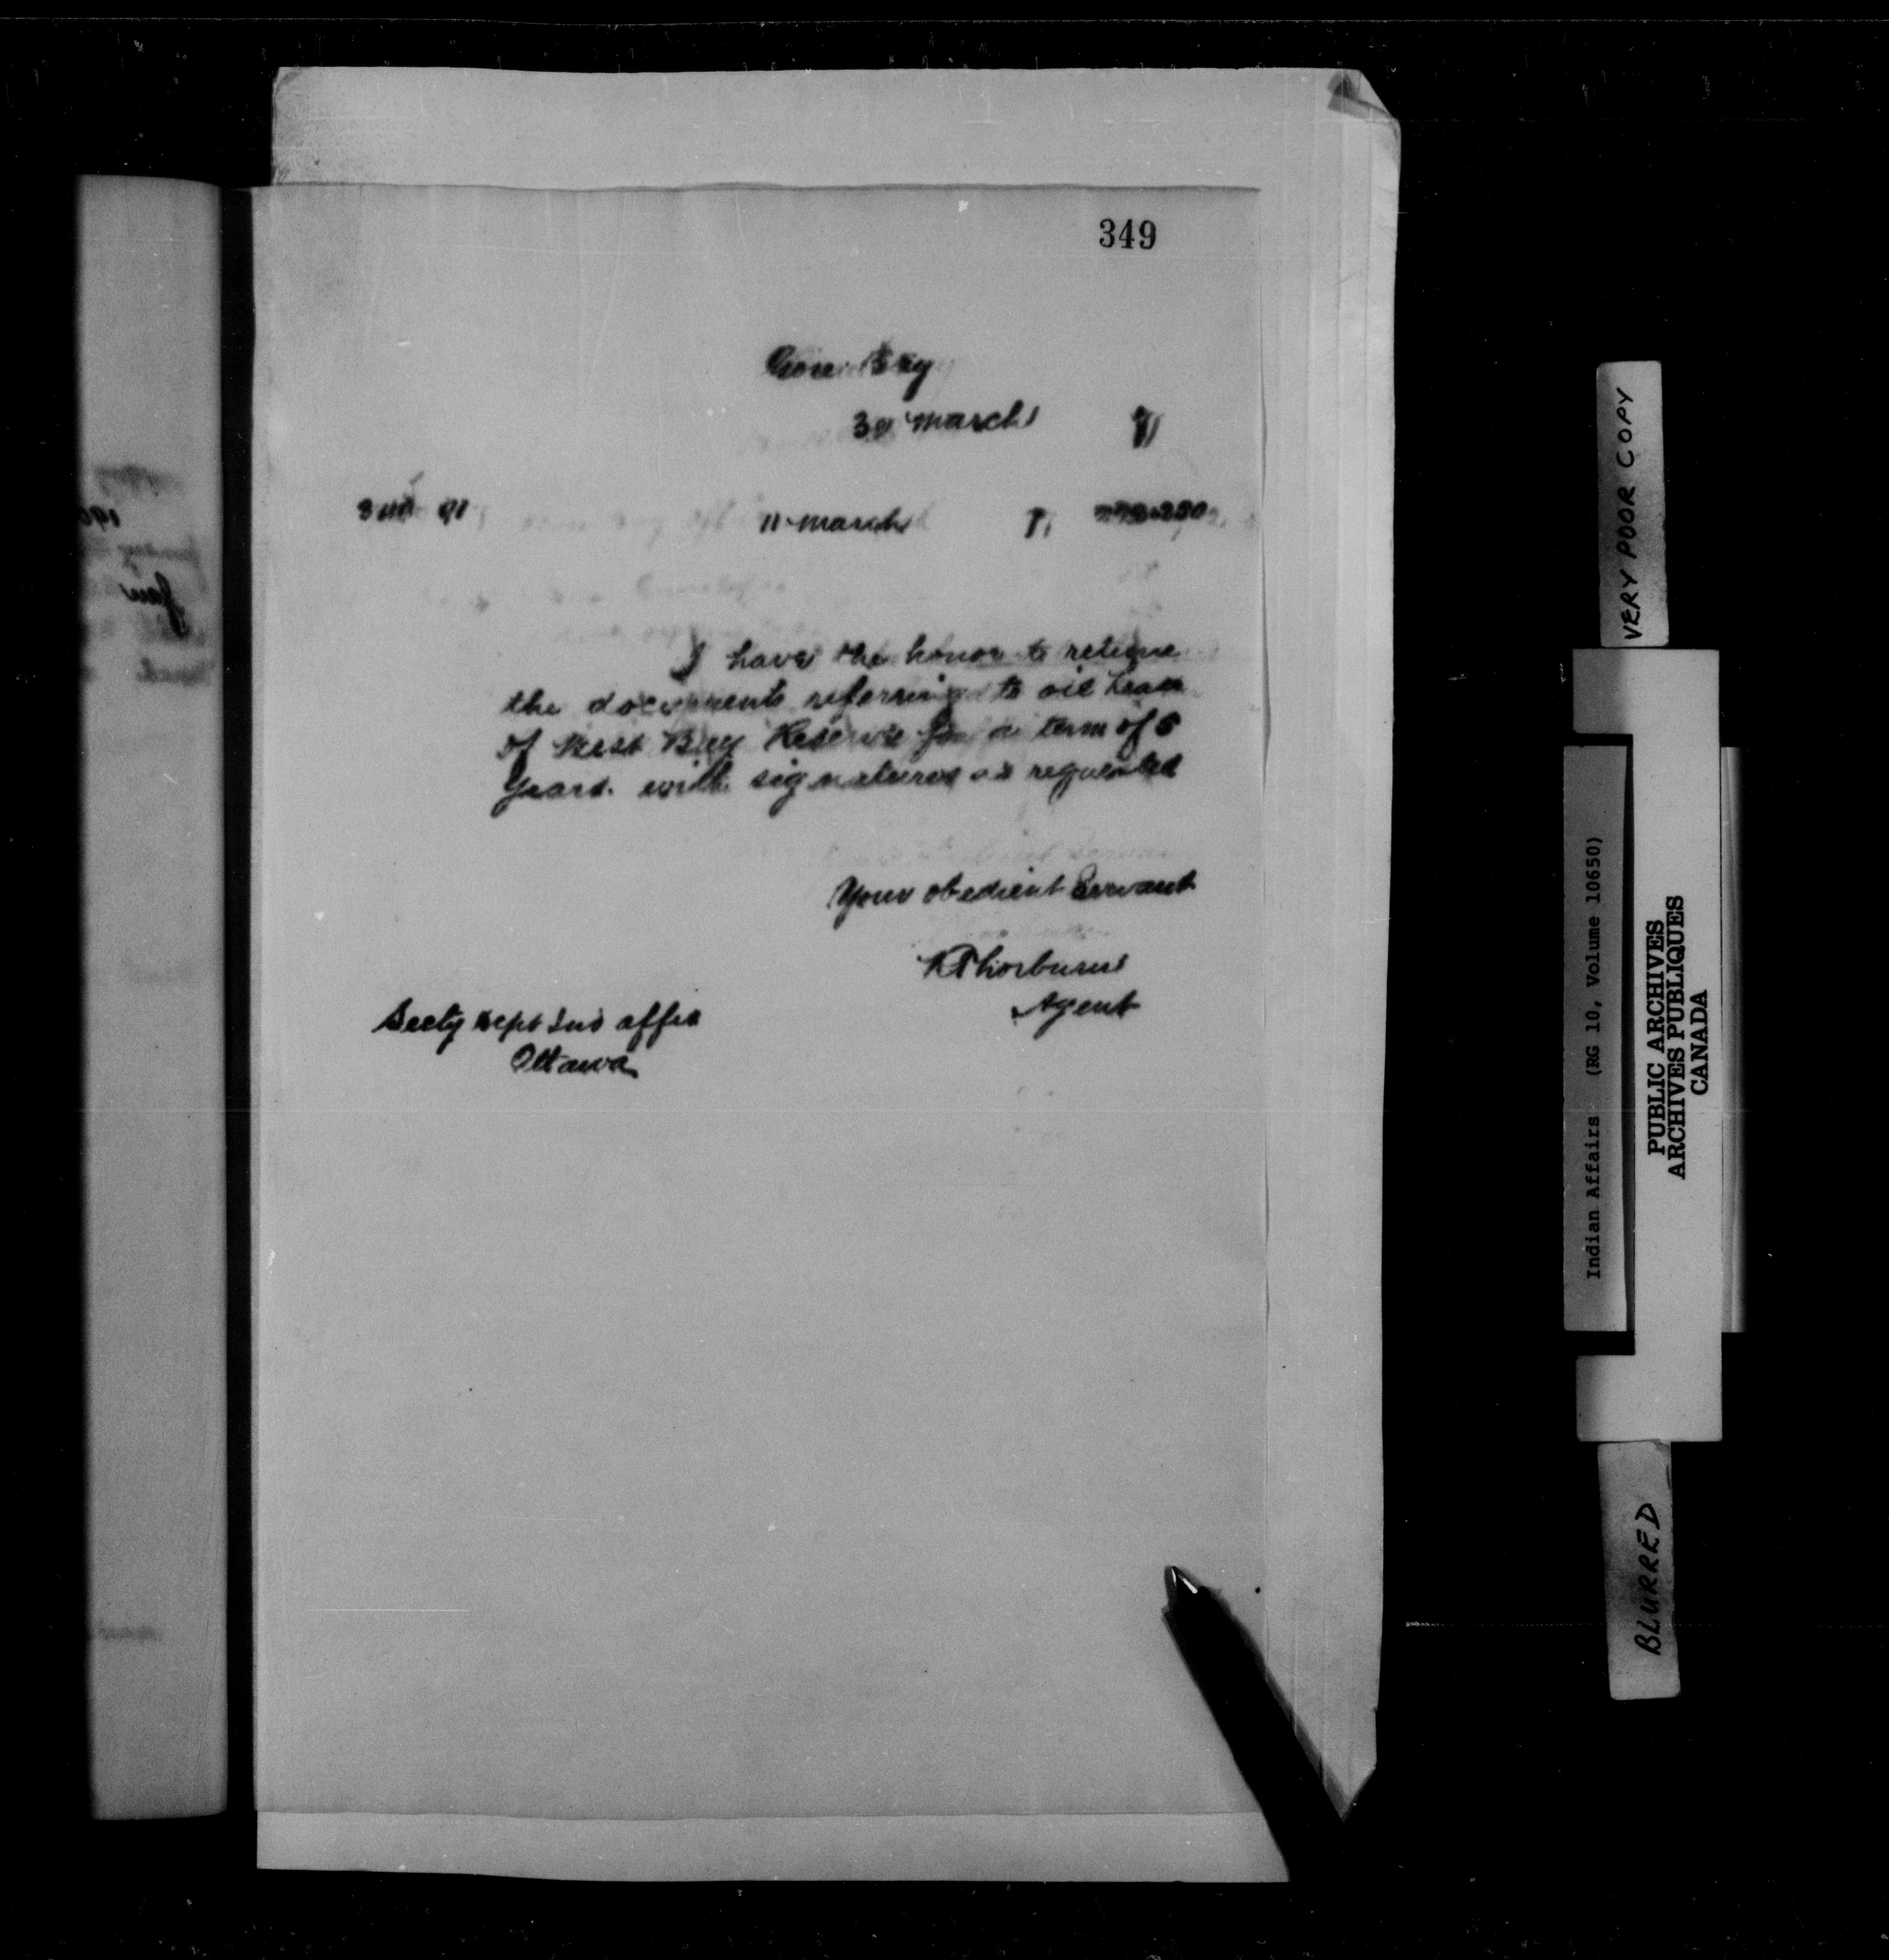 349
Gore Bay
30 March
11 March
I have the honor to return
the documents referring to oil Lease
of West Bay Reserve for a term of 5
Years. with signatures as requested
Your obedient Servant
R Thorburn
Agent
Secty Dept Ind affrs
Ottawa
VERY POOR COPY
Indian Affairs (RG 10, Volume 10650)
PUBLIC ARCHIVES
ARCHIVES PUBLIQUES
CANADA
BLURRED